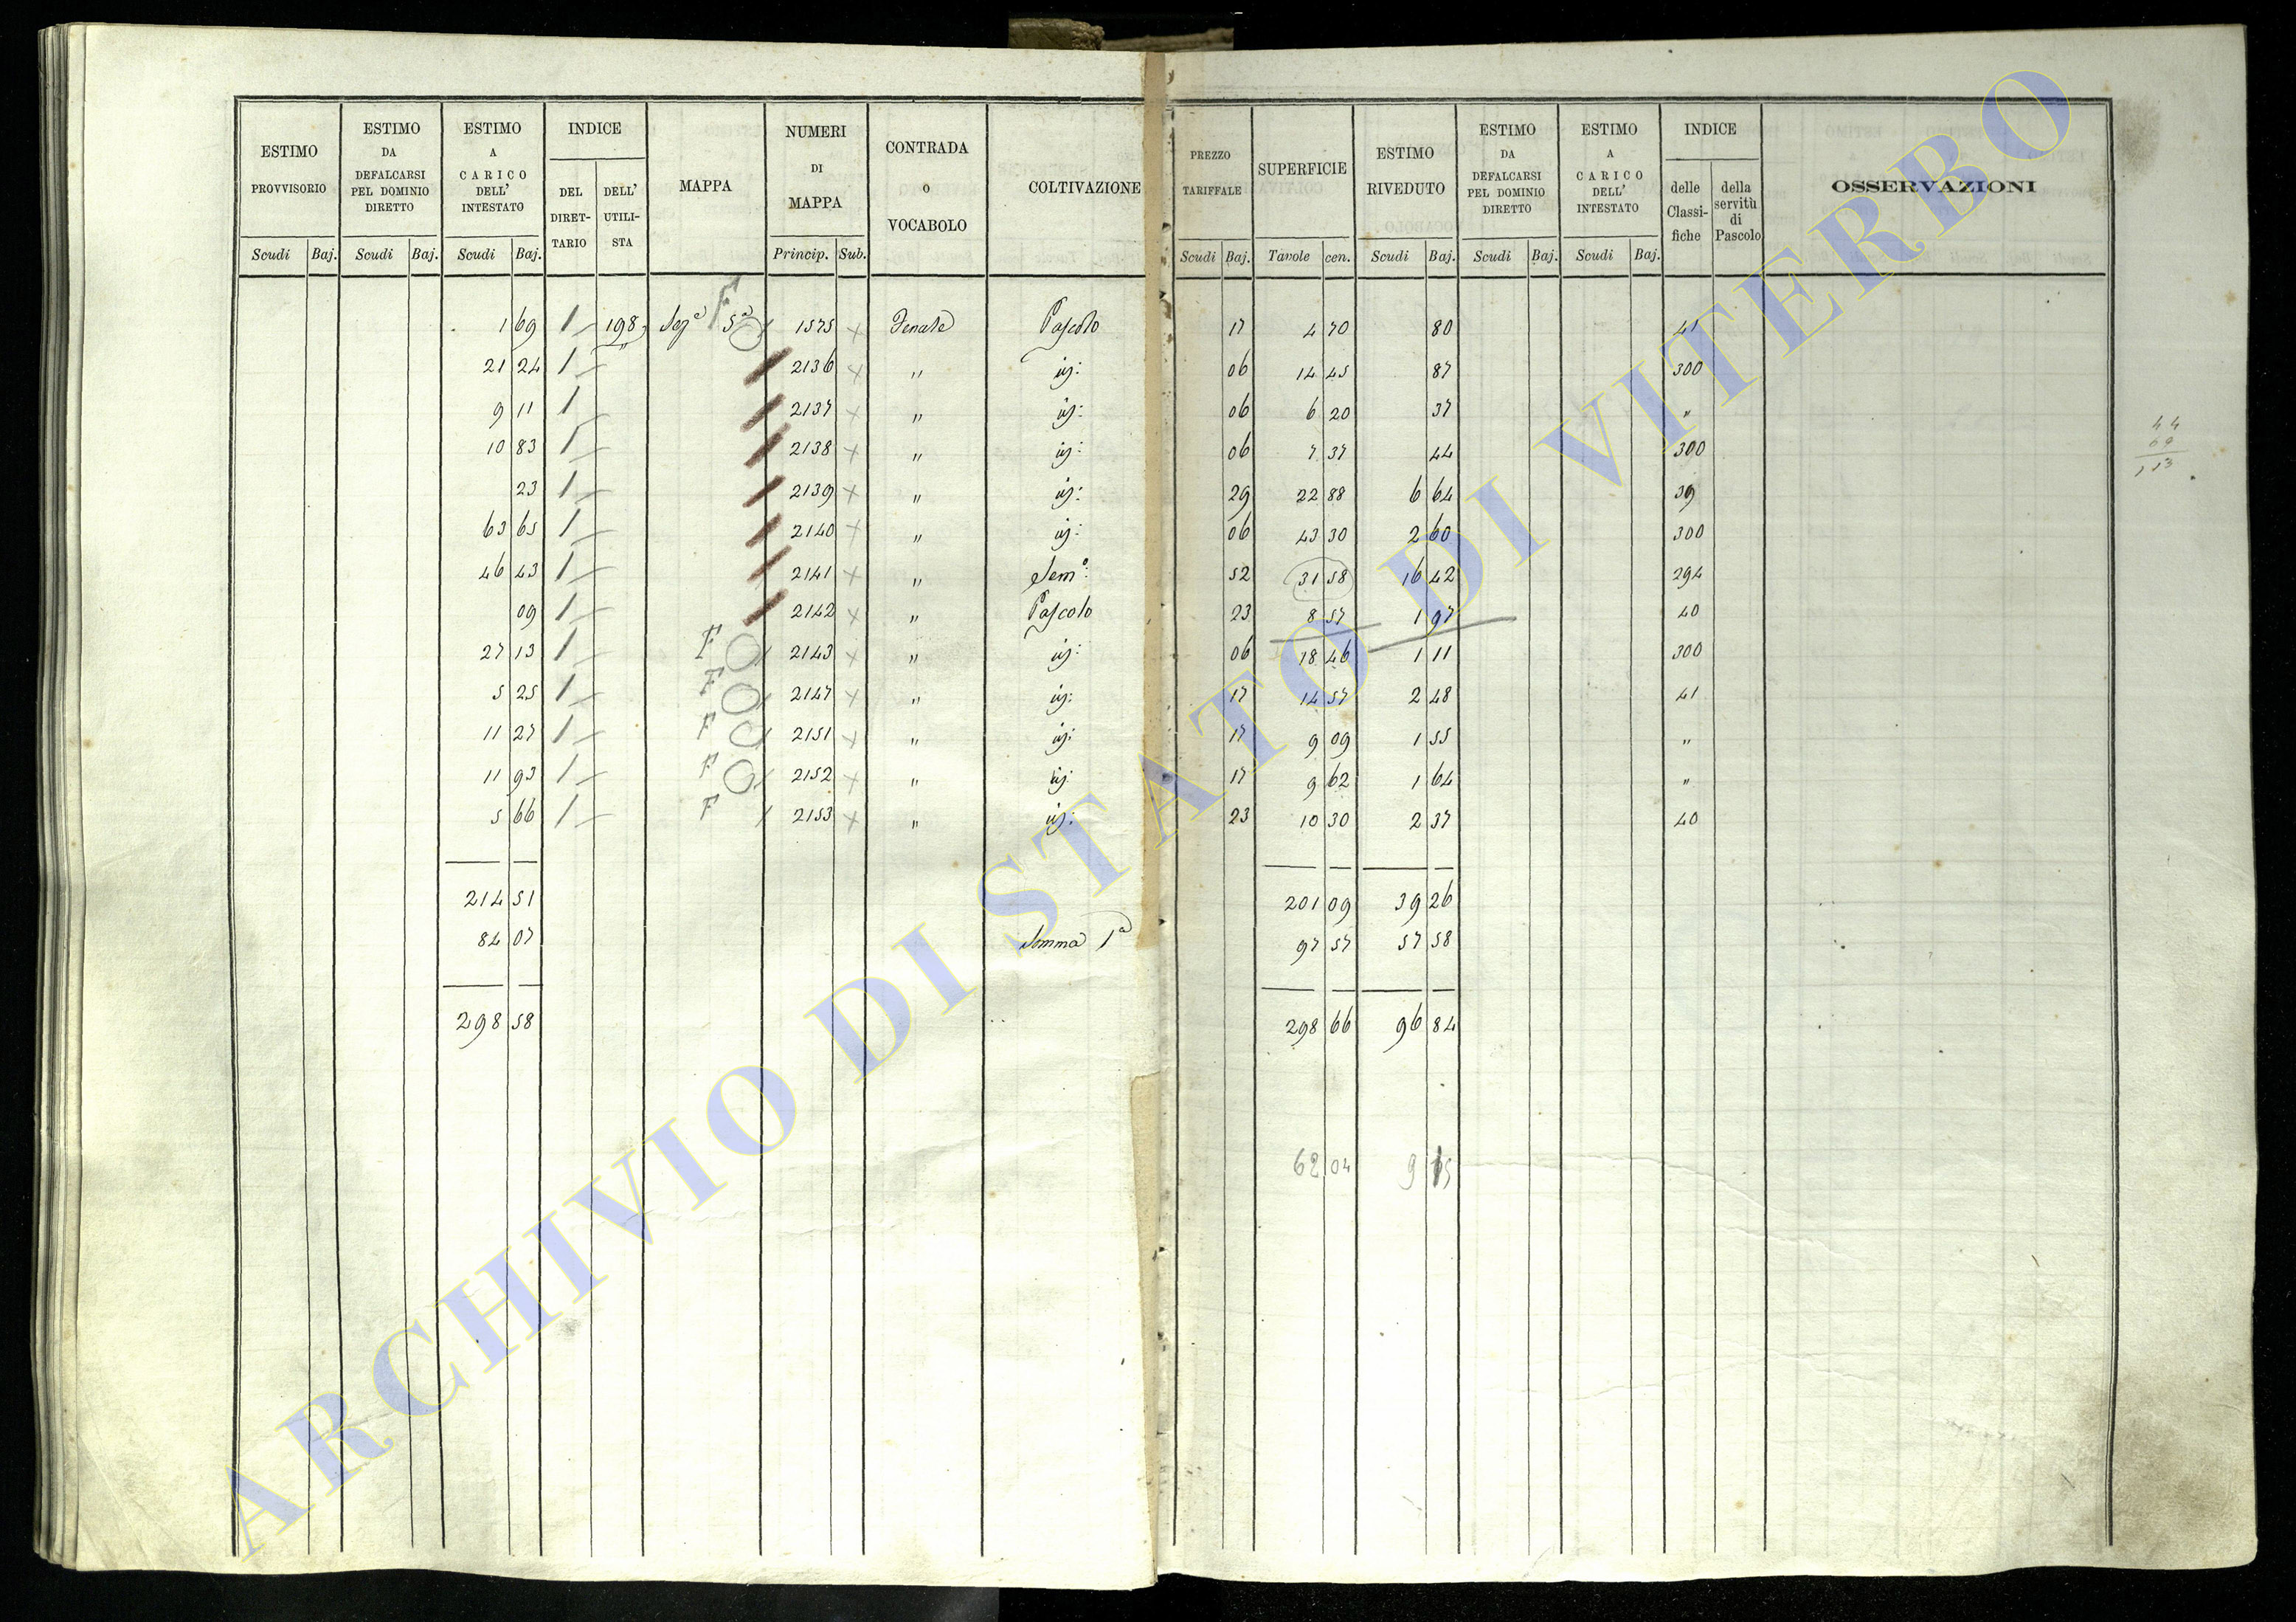 ESTIMO PROVVISORIO Scudi Baj.
ESTIMO DA DEFALCARSI PEL DOMINIO DIRETTO Scudi Baj.
ESTIMO A CARICO DELL' INTESTATO Scudi Baj.
INDICE DEL DIRET-TARIO DELL' UTILI-STA
MAPPA
NUMERI DI MAPPA Princip. Sub.
CONTRADA O VOCABOLO
COLTIVAZIONE
PREZZO TARIFFALE Scudi Baj.
SUPERFICIE Tavole cen.
ESTIMO RIVEDUTO Scudi Baj.
ESTIMO DA DEFALCARSI PEL DOMINIO DIRETTO Scudi Baj.
ESTIMO A CARICO DELL' INTESTATO Scudi Baj.
INDICE delle Classi-fiche della servitù di Pascolo
OSSERVAZIONI
1 69 1 198 Sez.e 5a F 1575 x Fenale Pascolo 17 4 70 80 41
21 24 1 2136 x " id: 06 14 45 87 300
9 11 1 2137 x " id: 06 6 20 37 "
10 83 1 2138 x " id: 06 7 37 44 300
23 1 2139 x " id: 29 22 88 6 64 39
63 65 1 2140 x " id: 06 43 30 2 60 300
46 43 1 2141 x " Sem.o: 52 31 58 16 42 294
09 1 2142 x " Pascolo 23 8 57 1 97 40
27 13 1 F 2143 x " id: 06 18 46 1 11 300
5 25 1 F 2147 x " id: 17 14 57 2 48 41
11 27 1 F 2151 x " id: 17 9 09 1 55 "
11 93 1 F 2152 x " id: 17 9 62 1 64 "
5 66 1 F 2153 x " id: 23 10 30 2 37 40
214 51 201 09 39 26
84 07 Somma 1a 97 57 57 58
298 58 298 66 96 84
62 04 9 15
44
69
113
ARCHIVIO DI STATO DI VITERBO